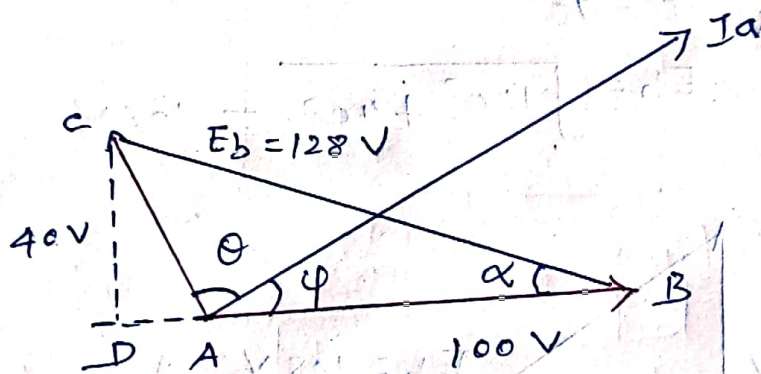 Ia
C
Eb = 128 V
40V
θ
φ
α
B
D
A
100 V